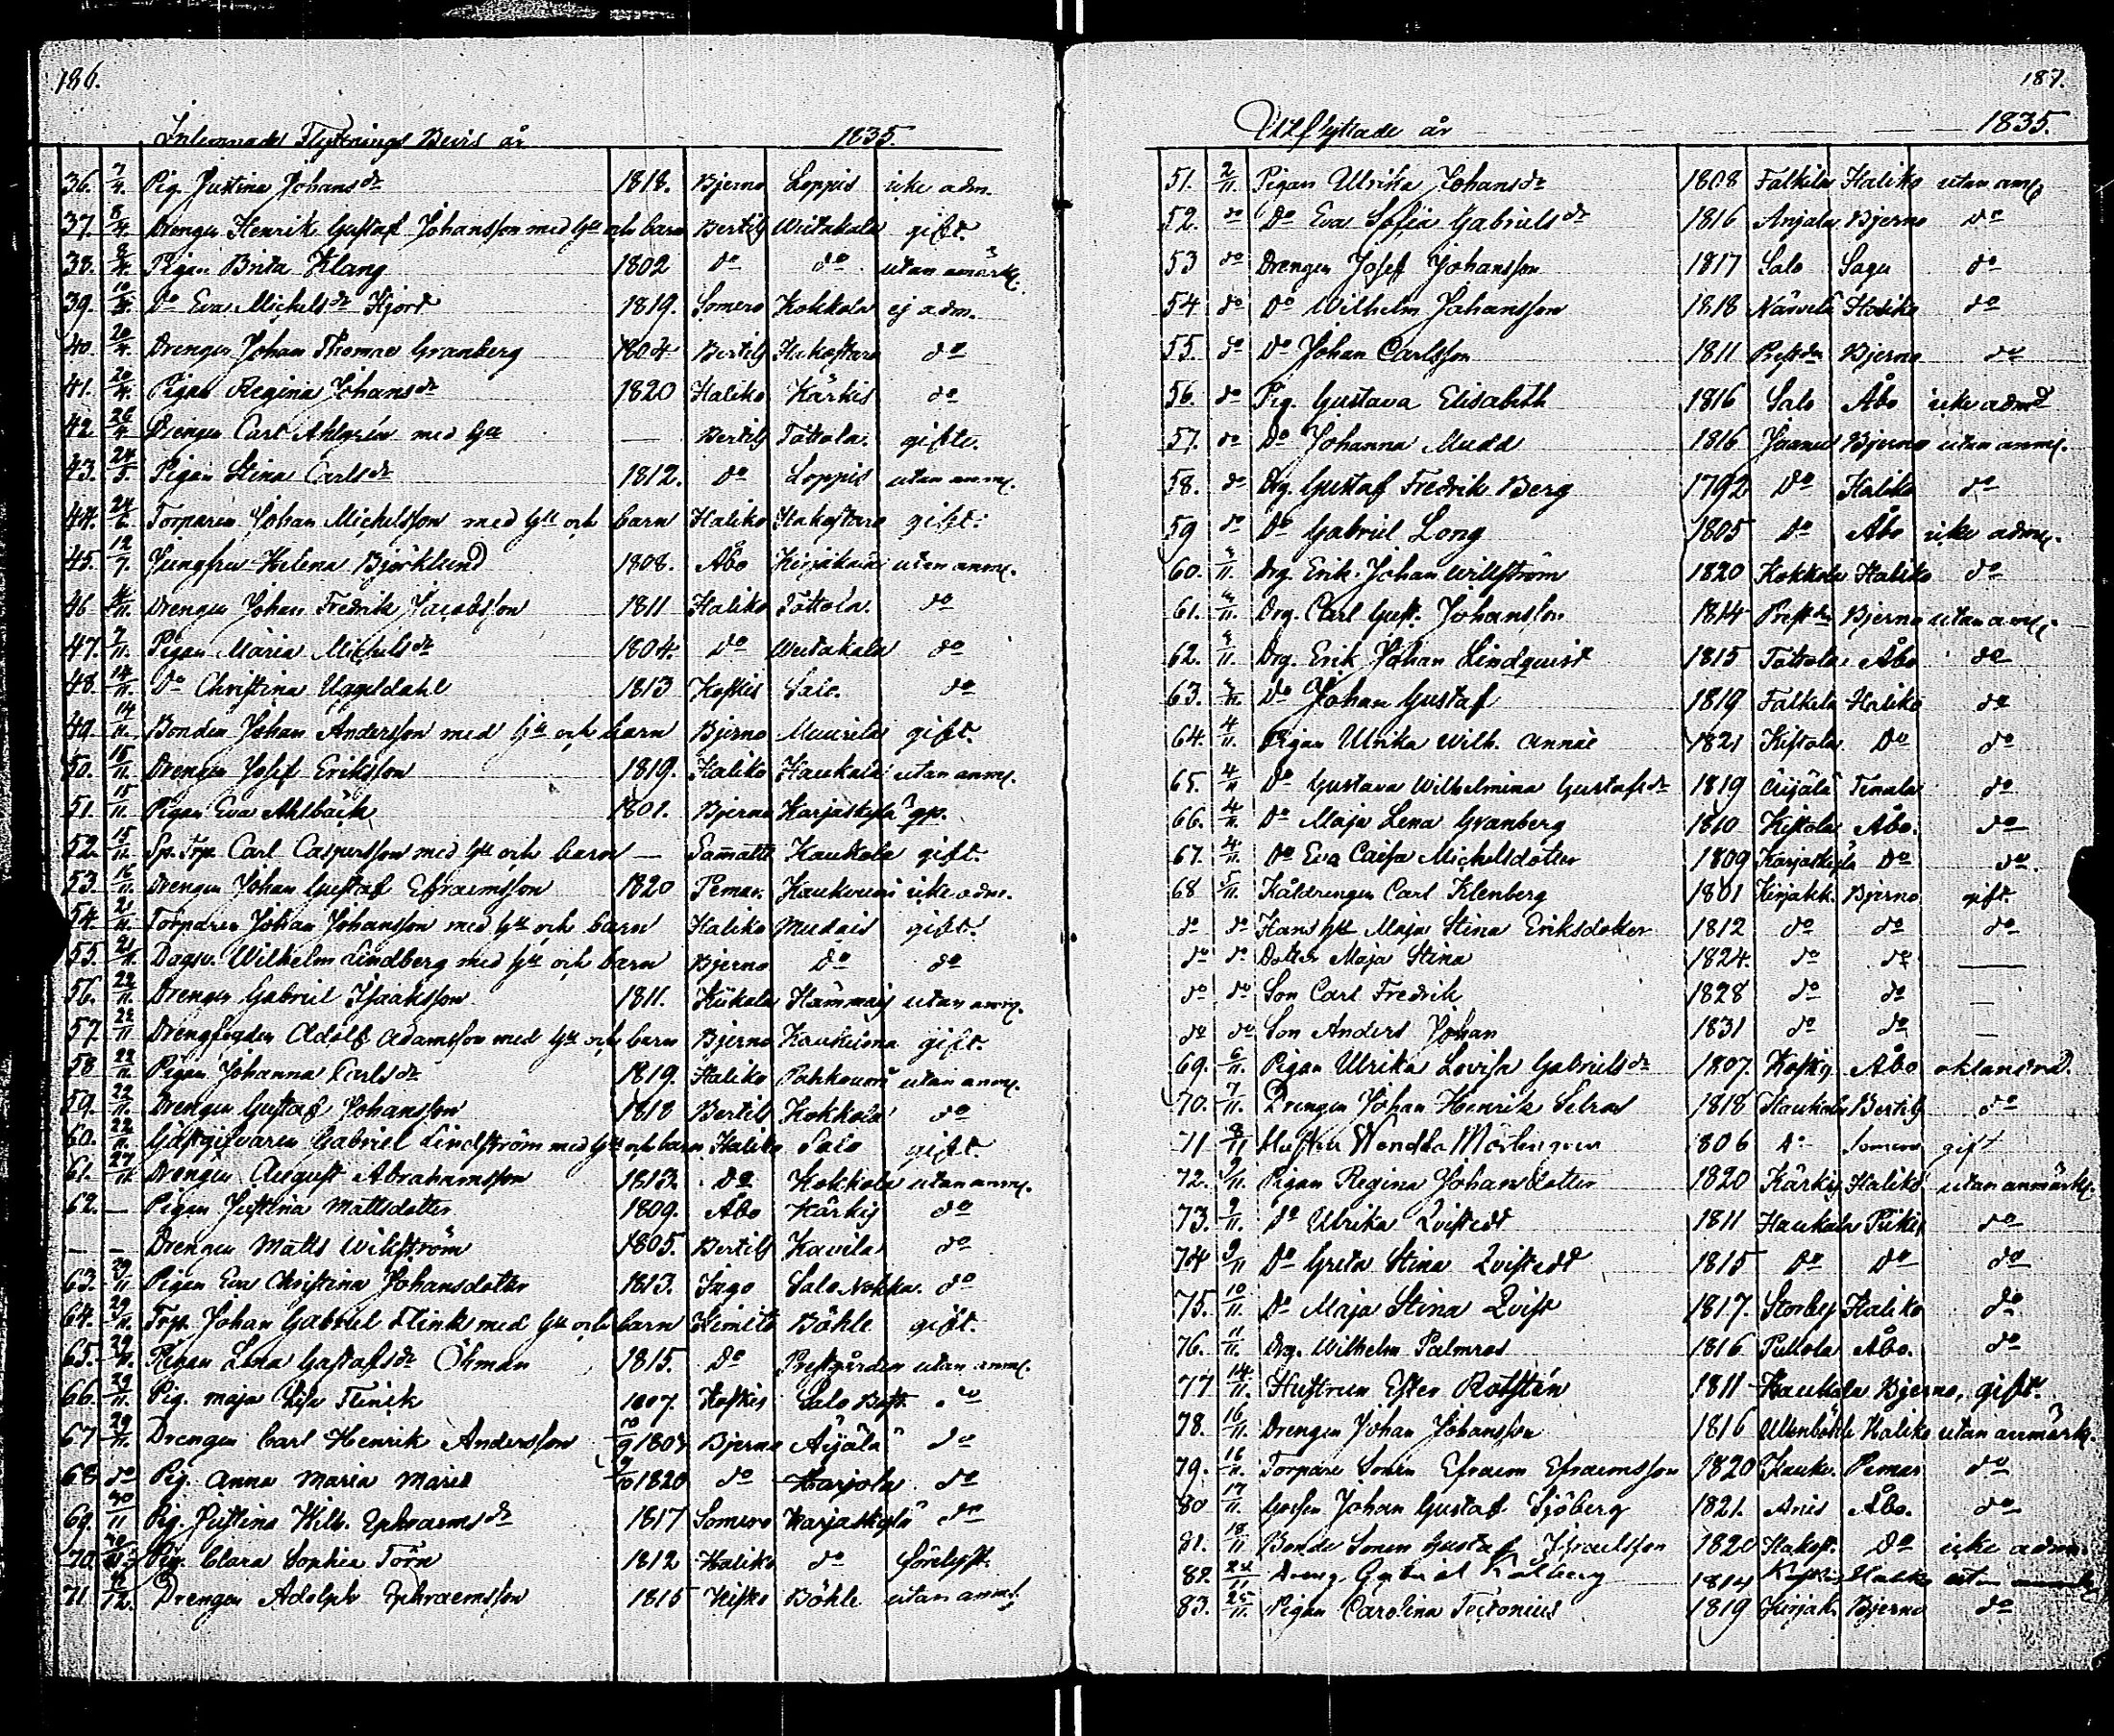 186.
Inlemnade Flyttnings Bevis år 1835.
36. 7/4. Pig. Justina Johansdr 1818. Bjerno Loppis icke adm.
37. 8/4. Drengen Henrik Gustaf Johansson med Hu och barn Bertils Wiitakala gift.
38. 8/4. Pigan Brita Klang 1802 do do utan anmärk.
39. 10/4. Do Eva Michelsdr Hjort 1819. Somero Kokkola ej adm.
40. 20/4. Drengen Johan Thomas Granberg 1804 Bertils Hakostaro do
41. 20/4. Pigan Regina Johansdr 1820 Haliko Kärkis do
42 26/4 Drengen Carl Ahlgrén med Hu — Bertils Tottola gifte.
43. 24/5. Pigan Stina Carlsdr 1812. do Loppis utan anm.
44. 24/6. Torparen Johan Michelsson med Hu och barn Haliko Hakostaro gift.
45. 12/7. Jungfru Helena Björklund 1808. Åbo Kirjakkala utan anm.
46 4/11. Drengen Johan Fredrik Jacobsson 1811 Haliko Tottola do
47. 7/11. Pigan Maria Michelsdr 1804. Do Wiitakala do
48. 14/11. Do Christina Uggeldahl 1813 Koskis Salo. do
49. 14/11. Bonden Johan Andersson med Hu och barn Bjerno Muurila gift.
50. 15/11. Drengen Josef Eriksson 1819. Haliko Haukala utan anm.
51. 15/11. Pigan Eva Ahlbäck 1801. Bjerno Karjaskylä
52. 15/11. Sp. Torp. Carl Caspersson med Hu och barn — Sammatti Haukola gift.
53. 16/11. Drengen Johan Gustaf Efraemsson 1820 Pemar. icke adm.
54. 21/11. Torparen Johan Johansson med Hu och barn Haliko Mudais gift.
55. 21/11. Dagsv. Wilhelm Lindberg med Hu och barn Bjerno Do do
56. 22/11. Drengen Gabriel Isaaksson 1811. Kiikala Hämmäis utan anm.
57. 22/11 Drengfogden Adolf Adamsson med Hu och barn Bjerno gift.
58 22/11. Pigan Johanna Carlsdr 1819. Haliko utan anm.
59. 22/11. Drengen Gustaf Johansson 1818 Bertils Kokkola do
60. 22/11. Gästgifvaren Gabriel Lindström med Hu och barn Haliko Salo gift
61. 27/11. Drengen August Abrahamsson 1813. Do Kokkola utan anm.
62. — Pigan Justina Mattsdotter 1809. Åbo Kärkis do
— — Drengen Matts Wikström 1805. Bertils Kavila do
63. 29/11 Pigan Eva Christina Johansdotter 1813. Sago Salo Nokka. do
64. 29/11. Torp. Johan Gabriel Flink med Hu och barn Kimito Böhle gift.
65. 29/11. Pigan Lena Gustafsdr Öhman 1815. Do Prestgården utan anm.
66. 29/11. Pig. Maja Lisa Flinck 1807. Koskis Salo Bost. do
67 29/11. Drengen Carl Henrik Andersson 10/9 1808 Bjerno Äijälä do
68 do Pig. Anna Maria Mariæ 9/10 1820 do Karjola do
69. 30/11 Pig. Justina Wilh. Ephraemsdr 1817 Somero Karjaskylä do
70. 30/11 Pig. Clara Sophia Törn 1812 Haliko do
71. 12. Drengen Adolph Ephraemsson 1815 Kisko Böhle utan anm.
187.
Utflyttade år 1835.
51. 2/11. Pigan Ulrika Johansdr 1808 Falkila Haliko utan anm.
52. do Do Eva Sofia Gabrielsdr 1816 Anjala Bjerno do
53 do Drengen Josef Johansson 1817 Salo Sagu do
54 do Do Wilhelm Johansson 1818 Haliko do
55. do Do Johan Carlsson 1811 Bjerno do
56. do Pig. Gustava Elisabeth 1816 Salo Åbo icke admd
57. do Do Johanna Mudd 1816 Bjerno utan anm.
58. do Drg. Gustaf Fredrik Berg 1792 Do Haliko do
59 do Do Gabriel Long 1805 Do Åbo icke adm.
60. 4/11. Drg. Erik Johan Willström 1820 Kokkola Haliko do
61. 4/11. Drg. Carl Gust. Johansson 1814 Bjerno utan anm.
62. 4/11. Drg. Erik Johan Lindquist 1815 Tottola Åbo do
63. 4/11. Do Johan Gustaf 1819 Falkila Haliko do
64. 4/11. Pigan Ulrika Wilh. Annæ 1821 Kistola Do do
65. 4/11 Do Gustava Wilhelmina Gustafsdr 1819 Äijälä Tenala do
66. 4/11. Do Maja Lena Granberg 1810 Kistola Åbo. do
67. 4/11. Do Eva Caisa Michelsdotter 1809 Karjaskylä Do do.
68 5/11. Kåldrengen Carl Klenberg 1801 Kirjakk. Bjerno gift.
do do Hans Hu Maja Stina Eriksdotter 1812 do do do
do do Dotter Maja Stina 1824. do do —
do do Son Carl Fredrik 1828 do do —
do do Son Anders Johan 1831 do do —
69. 6/11. Pigan Ulrika Lovisa Gabrielsdr 1807. Koskis Åbo oklandrad.
70. 7/11. Drengen Johan Henrik Selroos 1818 Haukala Bertils do
71 8/11 Hustru Wendla 1806 do Somero gift
72. 9/11. Pigan Regina Johansdotter 1820 Kärkis Haliko utan anmärk.
73. 9/11. do Ulrika Qvistedt 1811 Haukala Piikis do
74 9/11 Do Greta Stina Qvistedt 1815 Do Do do
75. 10/11. Do Maja Stina Qvist 1817. Storby Haliko do
76. 11/11. Drg. Wilhelm Palmros 1816 Pullola Åbo. do
77 14/11. Hustrun Ester Rotstén 1811 Haukala Bjerno, gift.
78. 16/11. Drengen Johan Johansson 1816 Ullenböhle Haliko utan anmärk.
79. 16/11. Torpare Sonen Efraem Efraemsson 1820 Pemar do
80 17/11. Gossen Johan Gustaf Sjöberg 1821. Anis Åbo. do
81. 18/11 Bonde Sonen Gustaf Israelsson 1820 Hakost. Do icke adm.
82. 24/11 Dreng Gabriel Kålberg 1814 Haliko utan
83. 25/11. Pigan Carolina Tectonius 1819 Kirjak. Bjerno do